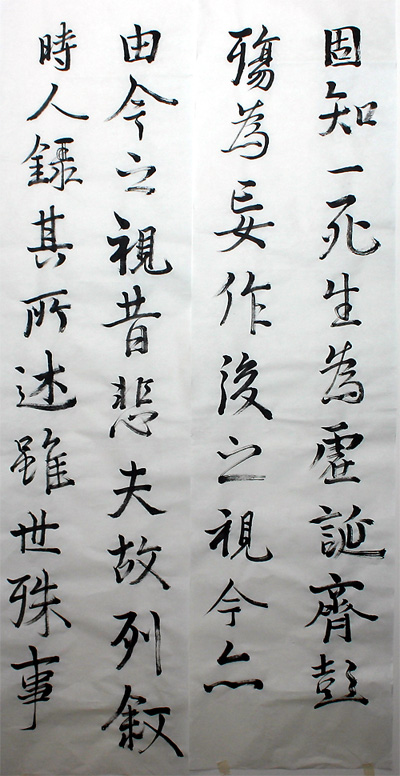 固知一死生為虛誕齊彭
殤為妄作後之視今亦
由今之視昔悲夫故列敘
時人錄其所述雖世殊事